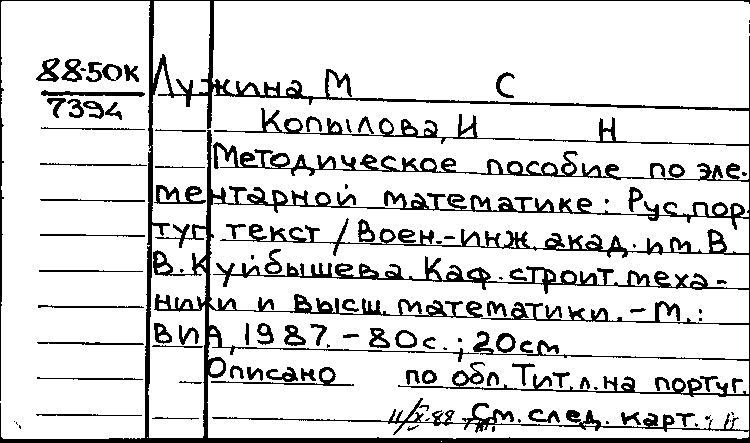 88-50К Лужина, М С
7394
Копылова, И Н
Методическое пособие по эле-
ментарной математике: Рус., пор-
туг. текст / Воен.-инж. акад. им. В.
В. Куйбышева. Каф. строит. меха-
ники и высш. математики. - М.:
ВИА, 1987. - 80с.; 20см.
Описано по обл. Тит. л. на португ.
См. след. карт.